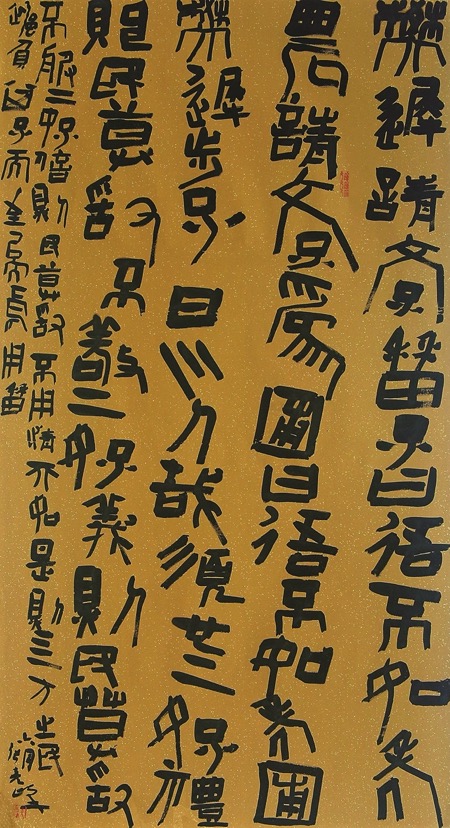 樊遲請學稼子曰吾不如老
農請學爲圃曰吾不如老圃
樊遲出子曰小人哉須也上好禮
則民莫敢不敬上好義則民莫敢
不服上好信則民莫敢不用情夫如是則四方之民
襁負其子而至矣焉用稼